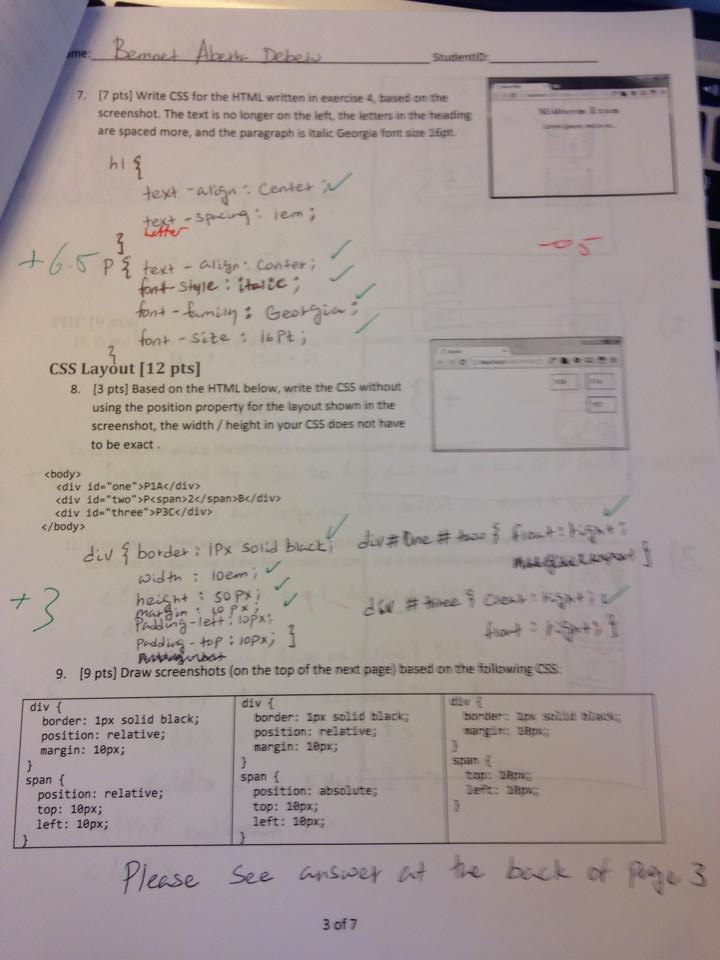 ame: Bemnet Aberra Debelu StudentID:
7. [7 pts] Write CSS for the HTML written in exercise 4, based on the
screenshot. The text is no longer on the left, the letters in the heading
are spaced more, and the paragraph is italic Georgia font size 16pt.
Midterm Exam
h1 {
text-align: Center;
text-spacing: 1em;
Letter
}
+6.5
-05
P { text-align: Center;
font-style: italic;
font-family: Georgia;
font-size: 16Pt;
}
CSS Layout [12 pts]
8. [3 pts] Based on the HTML below, write the CSS without
using the position property for the layout shown in the
screenshot, the width / height in your CSS does not have
to be exact .
<body>
<div id="one">P1A</div>
<div id="two">P<span>2</span>B</div>
<div id="three">P3C</div>
</body>
div { border: 1Px solid black;
width: 10em;
height: 50px;
margin: 10px;
Padding-left: 10px;
Padding-top: 10px; }
div #One #two { float: Right;
}
div #three { Clear: Right;
float: Right; }
+3
9. [9 pts] Draw screenshots (on the top of the next page) based on the following CSS:
div {
border: 1px solid black;
position: relative;
margin: 10px;
}
span {
position: relative;
top: 10px;
left: 10px;
}
div {
border: 1px solid black;
position: relative;
margin: 10px;
}
span {
position: absolute;
top: 10px;
left: 10px;
}
div {
border: 1px solid black;
margin: 10px;
}
span {
top: 10px;
left: 10px;
}
Please See answer at the back of page 3
3 of 7